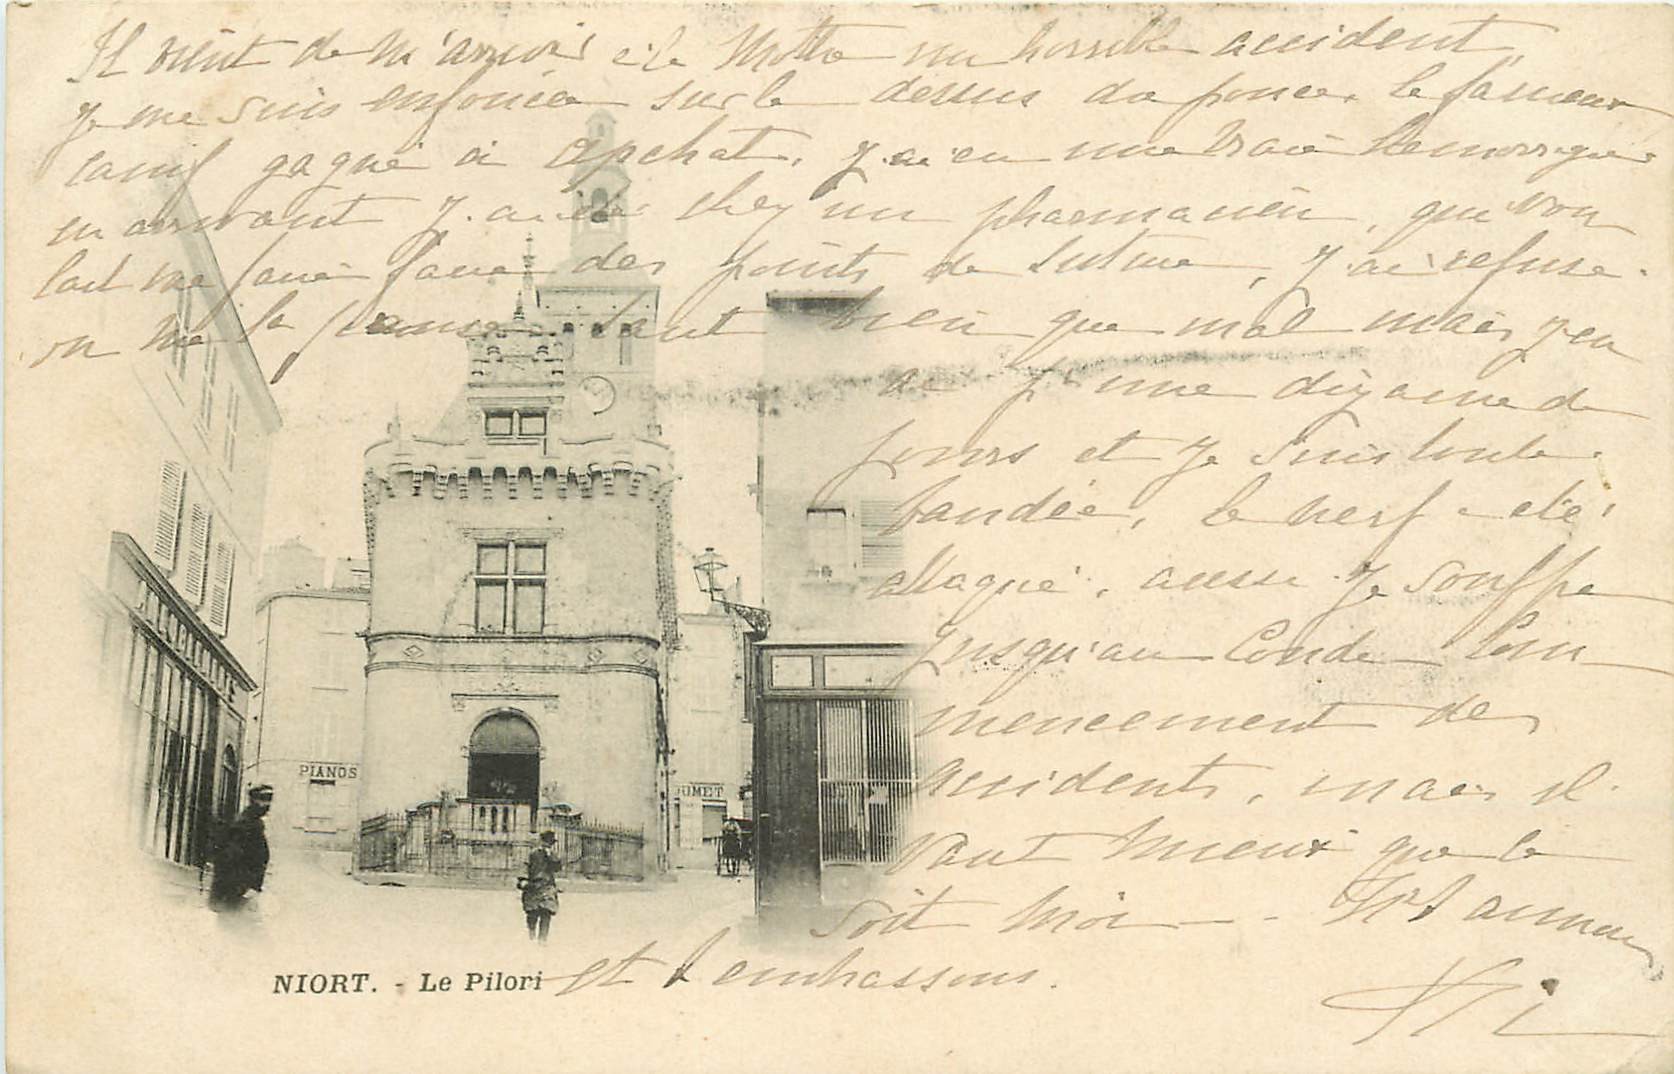 Il vient de m'arriver à la Mothe un horrible accident,
je me suis enfoncée sur le dessus du pouce, le fameux
canif gagné à Apchat, j'ai eu une vraie hémorragie
en arrivant j'ai été chez un pharmacien, que vou
lait me faire faire des points de suture, j'ai refusé.
on me l'a pansé tant bien que mal mais j'en
ai p. une dizaine de
jours et je suis toute
bandée, le nerf a été
attaqué, aussi je souffre
jusqu'au Coude Com
mencement des
accidents, mais il
vaut mieux que ce
soit moi — 
et t'embrassons.
ALLIBAUME
PIANOS
UMET
NIORT. - Le Pilori